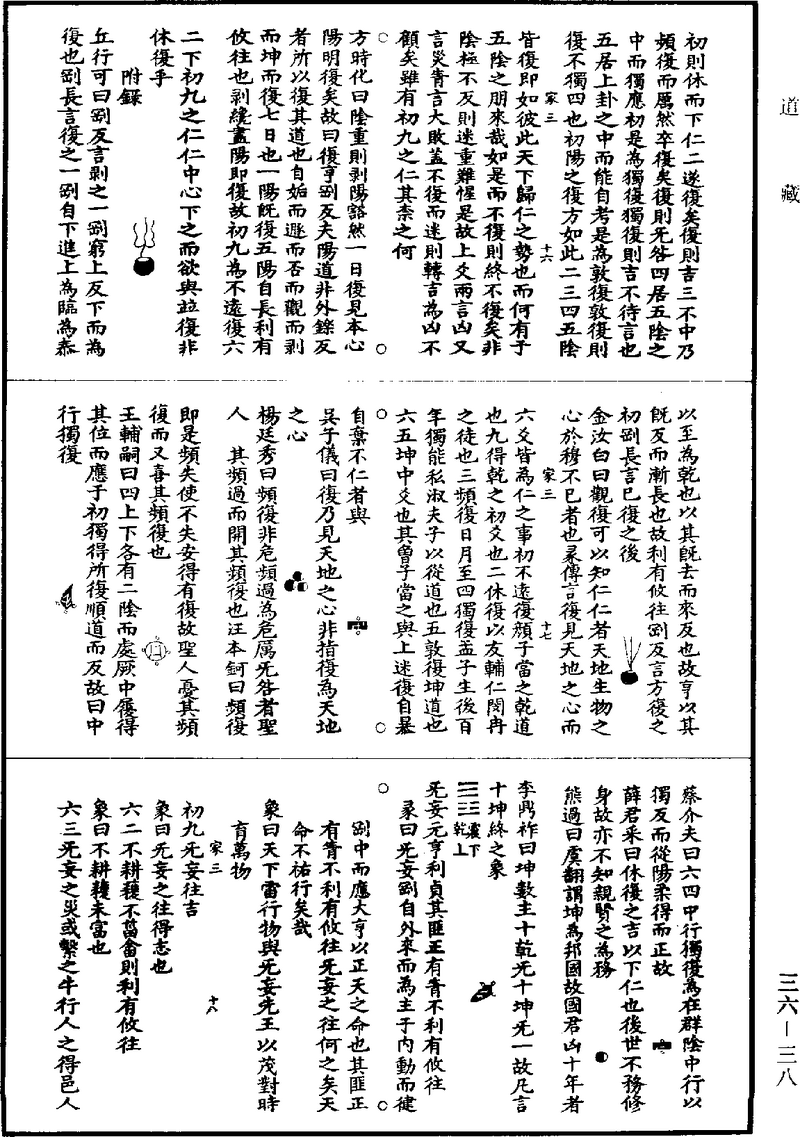 道藏
初則休而下仁二遂復矣復則吉三不中乃
頻復而厲然卒復矣復則无咎四居五陰之
中而獨應初是為獨復獨復則吉不待言也
五居上卦之中而能自考是為敦復敦復則
復不獨四也初陽之復方如此二三四五陰
家三 十六
皆復即如彼此天下歸仁之勢也而何有于
五陰之朋來哉如是而不復則終不復矣非
陰極不反則迷重難惺是故上爻兩言凶又
言災眚言大敗蓋不復而迷則轉吉為凶不
顧矣雖有初九之仁其柰之何
方時化曰陰重則剝陽豁然一日復見本心
陽明復矣故曰復亨剛反夫陽道非外鑠反
者所以復其道也自姤而遯而否而觀而剥
而坤而復七日也一陽旣復五陽自長利有
攸往也剥纔盡陽即復故初九為不遠復六
二下初九之仁仁中心下之而欲與並復非
休復乎
附錄
丘行可曰剛反言剥之一剛窮上反下而為
復也剛長言復之一剛自下進上為臨為泰
以至為乾也以其旣去而來反也故亨以其
旣反而漸長也故利有攸往剛反言方復之
初剛長言已復之後
金汝白曰觀復可以知仁仁者天地生物之
心於穆不已者也彖傳言復見天地之心而
家三 十七
六爻皆為仁之事初不遠復顏子當之乾道
也九得乾之初爻也二休復以友輔仁閔冉
之徒也三頻復日月至四獨復孟子生後百
年獨能私淑夫子以從道也五敦復坤道也
六五坤中爻也其曾子當之與上迷復自暴
自棄不仁者與
吳子儀曰復乃見天地之心非指復為天地
之心
楊廷秀曰頻復非危頻過為危厲无咎者聖
人 其頻過而開其頻復也汪本鈳曰頻復
即是頻失使不失安得有復故聖人憂其頻
復而又喜其頻復也
王輔嗣曰四上下各有二陰而處厥中履得
其位而應于初獨得所復順道而反故曰中
行獨復
蔡介夫曰六四中行獨復為在群陰中行以
獨反而從陽柔得而正故
薛君采曰休復之吉以下仁也後世不務修
身故亦不知親賢之為務
熊過曰虞翻謂坤為邦國故國君凶十年者
李鼎祚曰坤數主十乾无十坤无一故凡言
十坤終之象
震下
乾上
无妄元亨利貞其匪正有眚不利有攸往
彖曰无妄剛自外來而為主于內動而健
剛中而應大亨以正天之命也其匪正
有眚不利有攸往无妄之往何之矣天
命不祐行矣哉
象曰天下雷行物與无妄先王以茂對時
育萬物
家三 十八
初九无妄往吉
象曰无妄之往得志也
六二不耕穫不菑畬則利有攸往
象曰不耕穫未富也
六三无妄之災或繫之牛行人之得邑人
三六－三八